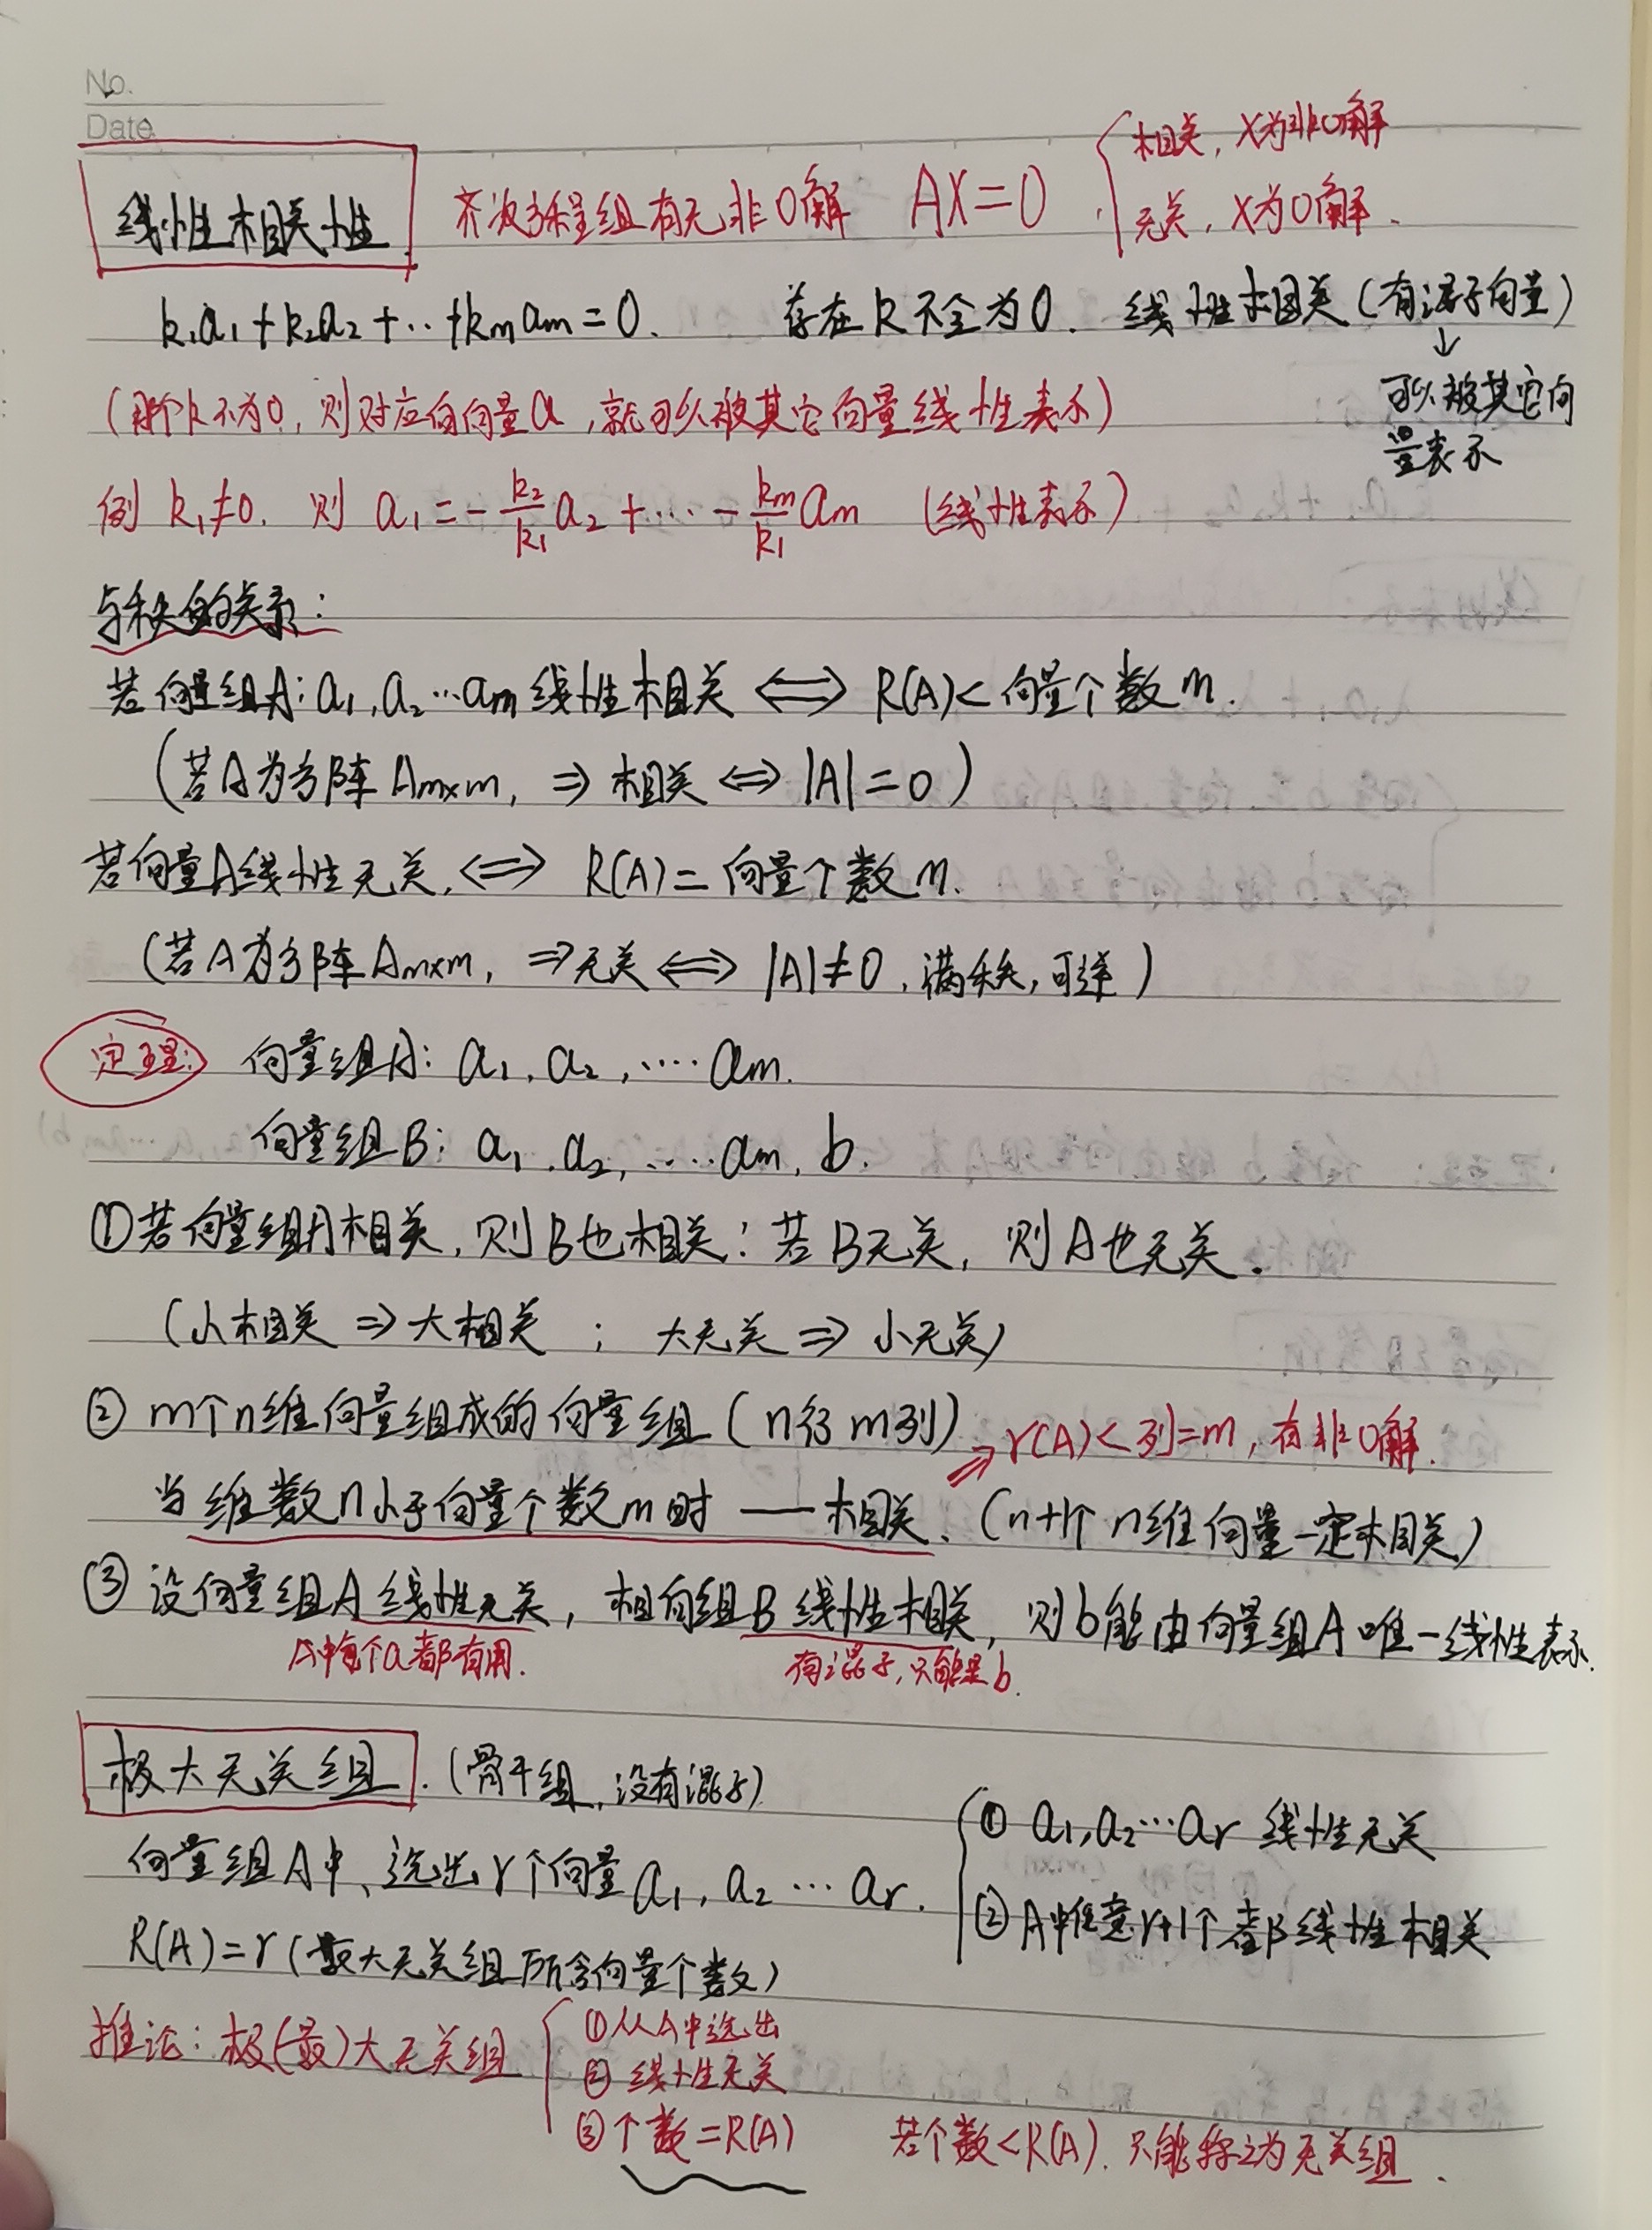 No.
Date
线性相关性 齐次方程组有无非0解 AX=0 { 相关, X为非0解
无关, X为0解.
k₁a₁+k₂a₂+…+kₘaₘ=0. 存在k不全为0. 线性相关(有混子向量)
↓
可以被其它向
量表示
(那个k不为0, 则对应的向量a, 就可以被其它向量线性表示)
例 k₁≠0. 则 a₁=-k₂/k₁ a₂+…-kₘ/k₁ aₘ (线性表示)
与秩的关系:
若向量组A: a₁,a₂…aₘ 线性相关 ⟺ R(A)<向量个数m.
(若A为方阵Aₘₓₘ, ⇒ 相关 ⟺ |A|=0)
若向量A线性无关, ⟺ R(A)=向量个数m.
(若A为方阵Aₘₓₘ, ⇒无关 ⟺ |A|≠0, 满秩, 可逆)
定理: 向量组A: a₁, a₂, …… aₘ.
向量组B: a₁, a₂, …… aₘ, b.
①若向量组A相关, 则B也相关; 若B无关, 则A也无关.
(小相关 ⇒ 大相关 ; 大无关 ⇒ 小无关)
② m个n维向量组成的向量组 (n行m列) ⇒ r(A)<列=m, 有非0解.
当维数n小于向量个数m时 —— 相关. (n+1个n维向量一定相关)
③ 设向量组A线性无关, 相向组B线性相关, 则b能由向量组A唯一线性表示.
A中每个a都有用. 有混子,只能是b.
极大无关组. (骨干组, 没有混子)
向量组A中、选出r个向量a₁, a₂ … aᵣ. { ① a₁,a₂…aᵣ 线性无关
② A中任意r+1个都线性相关
R(A)=r (最大无关组所含向量个数)
推论: 极(最)大无关组 { ①从A中选出
② 线性无关
③ 个数=R(A) 若个数<R(A). 只能称之为无关组.